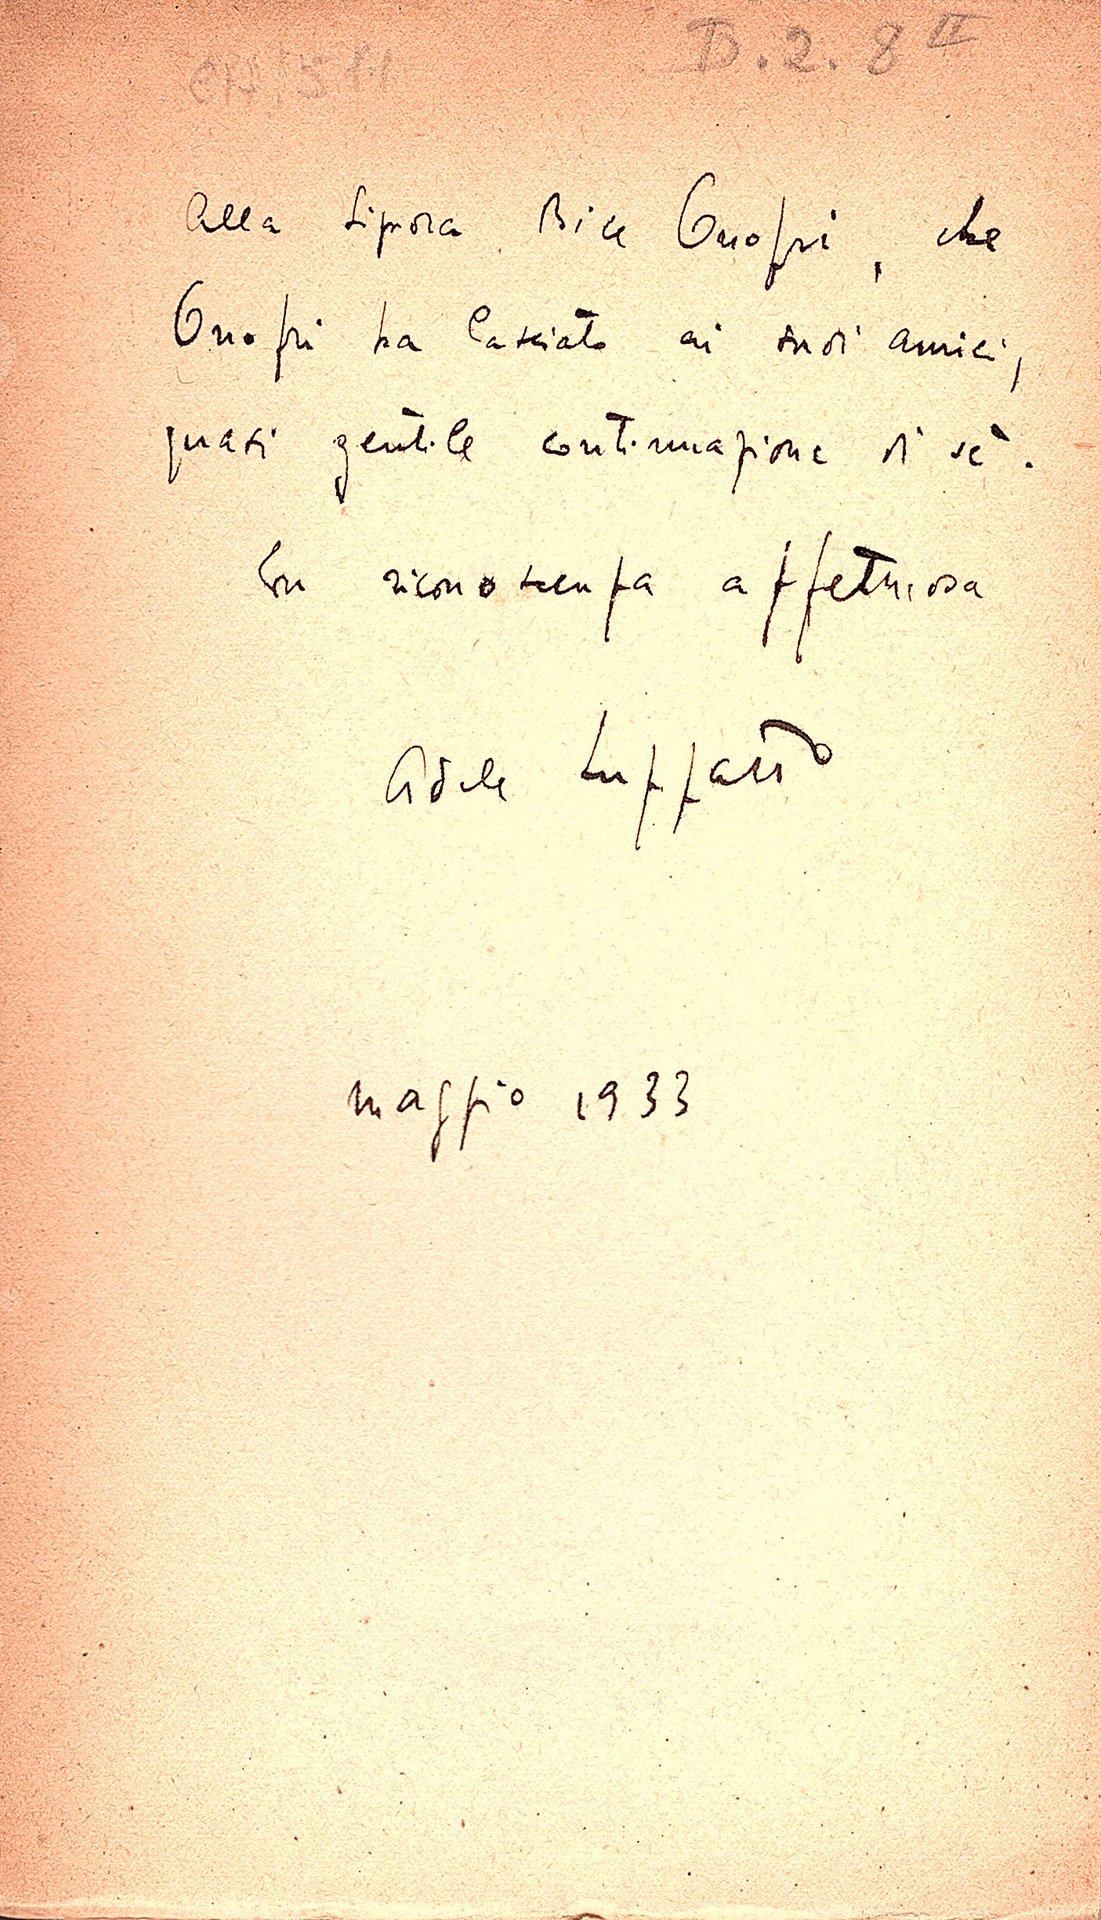 D.2.8 II
Alla Signora Bice Onofri, che
Onofri ha lasciato ai suoi amici,
quasi gentile continuazione di sè.
Con riconoscenza affettuosa
Adele Luzzatto
maggio 1933